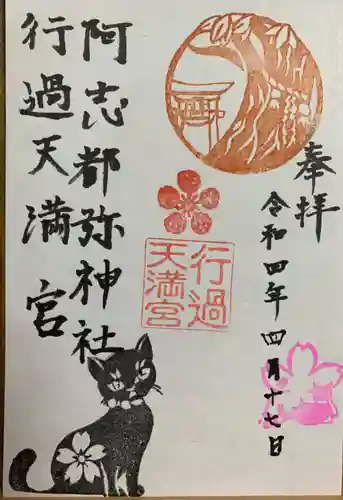 奉拝
令和四年四月十七日
行過
天満宮
阿志都弥神社
行過天満宮